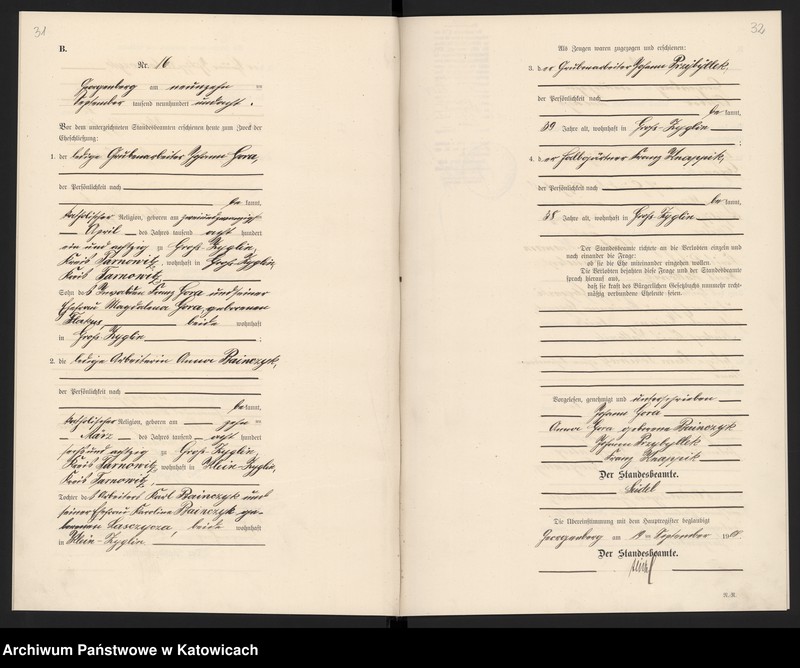 31
B.
Nr. 16
Georgenberg am neunzehn ten
September tausend neunhundert und acht.
Vor dem unterzeichneten Standesbeamten erschienen heute zum Zweck der
Eheschließung:
1. der ledige Grubenarbeiter Johann Gora,
der Persönlichkeit nach
be kannt,
katholischer Religion, geboren am zweiundzwanzigsten
April des Jahres tausend acht hundert
ein und achtzig zu Groß-Zyglin,
Kreis Tarnowitz, wohnhaft in Groß-Zyglin,
Kreis Tarnowitz,
Sohn des Invaliden Franz Gora und seiner
Ehefrau Magdalena Gora, geborenen
beide wohnhaft
in Groß-Zyglin ;
2. die ledige Arbeiterin Anna Bainczyk,
der Persönlichkeit nach
be kannt,
katholischer Religion, geboren am zehn ten
März des Jahres tausend acht hundert
sechs und achtzig zu Groß-Zyglin,
Kreis Tarnowitz, wohnhaft in Klein-Zyglin,
Kreis Tarnowitz,
Tochter des Arbeiters Karl Bainczyk und
seiner Ehefrau Karoline Bainczyk ge-
borenen beide wohnhaft
in Klein-Zyglin
32
Als Zeugen waren zugezogen und erschienen:
3. der Grubenarbeiter Johann Przybyllek,
der Persönlichkeit nach
be kannt,
39 Jahre alt, wohnhaft in Groß-Zyglin
;
4. der Halbgärtner Franz Knappik,
der Persönlichkeit nach
be kannt,
38 Jahre alt, wohnhaft in Groß-Zyglin
Der Standesbeamte richtete an die Verlobten einzeln und
nach einander die Frage:
ob sie die Ehe miteinander eingehen wollen.
Die Verlobten bejahten diese Frage und der Standesbeamte
sprach hierauf aus,
daß sie kraft des Bürgerlichen Gesetzbuchs nunmehr recht-
mäßig verbundene Eheleute seien.
Vorgelesen, genehmigt und unterschrieben
Johann Gora
Anna Gora geborene Bainczyk
Johann Przybyllek
Franz Knappik
Der Standesbeamte.
Seidel
Die Übereinstimmung mit dem Hauptregister beglaubigt
Georgenberg am 19 ten September 1908
Der Standesbeamte.
Seidel
Archiwum Państwowe w Katowicach